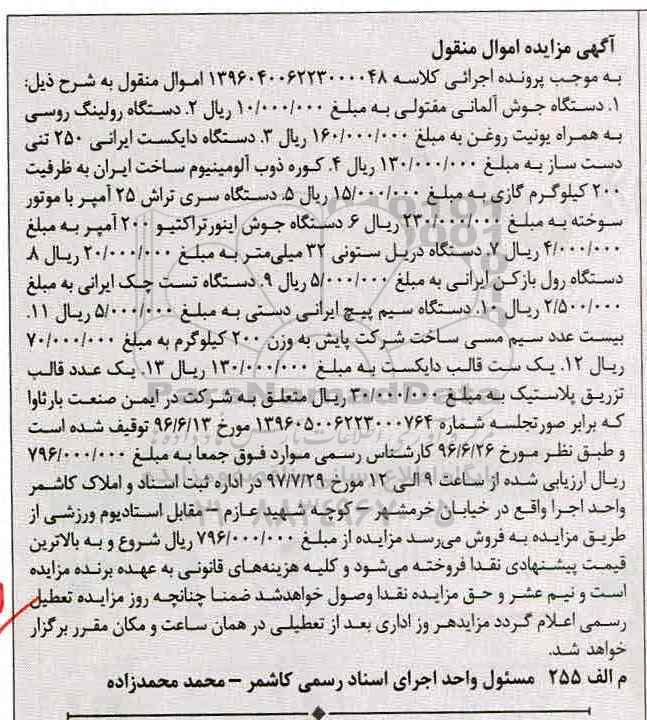 آگهی مزایده اموال منقول
به موجب پرونده اجرائی کلاسه ۱۳۹۶۰۴۰۰۶۲۲۳۰۰۰۰۴۸ اموال منقول به شرح ذیل:
۱. دستگاه جوش آلمانی مفتولی به مبلغ ۱۰/۰۰۰/۰۰۰ ریال ۲. دستگاه رولینگ روسی
به همراه یونیت روغن به مبلغ ۱۶۰/۰۰۰/۰۰۰ ریال ۳. دستگاه دایکست ایرانی ۲۵۰ تنی
دست ساز به مبلغ ۱۳۰/۰۰۰/۰۰۰ ریال ۴. کوره ذوب آلومینیوم ساخت ایران به ظرفیت
۲۰۰ کیلوگرم گازی به مبلغ ۱۵/۰۰۰/۰۰۰ ریال ۵. دستگاه سری تراش ۲۵ آمپر با موتور
سوخته به مبلغ ۲۳۰/۰۰۰/۰۰۰ ریال ۶. دستگاه جوش اینورتراکتیو ۲۰۰ آمپر به مبلغ
۴/۰۰۰/۰۰۰ ریال ۷. دستگاه دریل ستونی ۳۲ میلی‌متر به مبلغ ۲۰/۰۰۰/۰۰۰ ریال ۸.
دستگاه رول بازکن ایرانی به مبلغ ۵/۰۰۰/۰۰۰ ریال ۹. دستگاه تست چک ایرانی به مبلغ
۲/۵۰۰/۰۰۰ ریال ۱۰. دستگاه سیم پیچ ایرانی دستی به مبلغ ۵/۰۰۰/۰۰۰ ریال ۱۱.
بیست عدد سیم مسی ساخت شرکت پایش به وزن ۲۰۰ کیلوگرم به مبلغ ۷۰/۰۰۰/۰۰۰
ریال ۱۲. یک ست قالب دایکست به مبلغ ۱۳۰/۰۰۰/۰۰۰ ریال ۱۳. یک عدد قالب
تزریق پلاستیک به مبلغ ۳۰/۰۰۰/۰۰۰ ریال متعلق به شرکت در ایمن صنعت بارثاوا
که برابر صورتجلسه شماره ۱۳۹۶۰۵۰۰۶۲۲۳۰۰۰۷۶۴ مورخ ۹۶/۶/۱۳ توقیف شده است
و طبق نظر مورخ ۹۶/۶/۲۶ کارشناس رسمی موارد فوق جمعا به مبلغ ۷۹۶/۰۰۰/۰۰۰
ریال ارزیابی شده از ساعت ۹ الی ۱۲ مورخ ۹۷/۷/۲۹ در اداره ثبت اسناد و املاک کاشمر
واحد اجرا واقع در خیابان خرمشهر – کوچه شهید عازم – مقابل استادیوم ورزشی از
طریق مزایده به فروش می‌رسد مزایده از مبلغ ۷۹۶/۰۰۰/۰۰۰ ریال شروع و به بالاترین
قیمت پیشنهادی نقدا فروخته می‌شود و کلیه هزینه‌های قانونی به عهده برنده مزایده
است و نیم عشر و حق مزایده نقدا وصول خواهدشد ضمنا چنانچه روز مزایده تعطیل
رسمی اعلام گردد مزایدهر وز اداری بعد از تعطیلی در همان ساعت و مکان مقرر برگزار
خواهد شد.
م الف ۲۵۵ مسئول واحد اجرای اسناد رسمی کاشمر – محمد محمدزاده